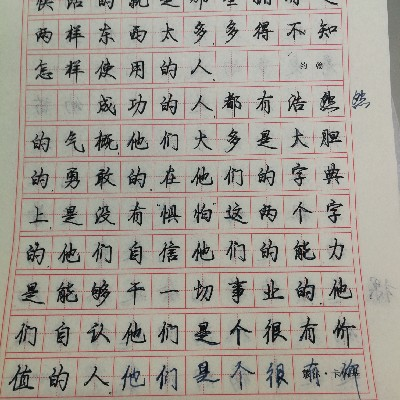 快活的就是那
两样东西太多多得不知
怎样使用的人
约翰
成功的人都有浩然 然
的气概他们大多是大胆
的勇敢的在他们的字典
上是没有惧怕这两个字
的他们自信他们的能力
是能够干一切事业的他
们自认他们是个很有价
值的人他们是个很